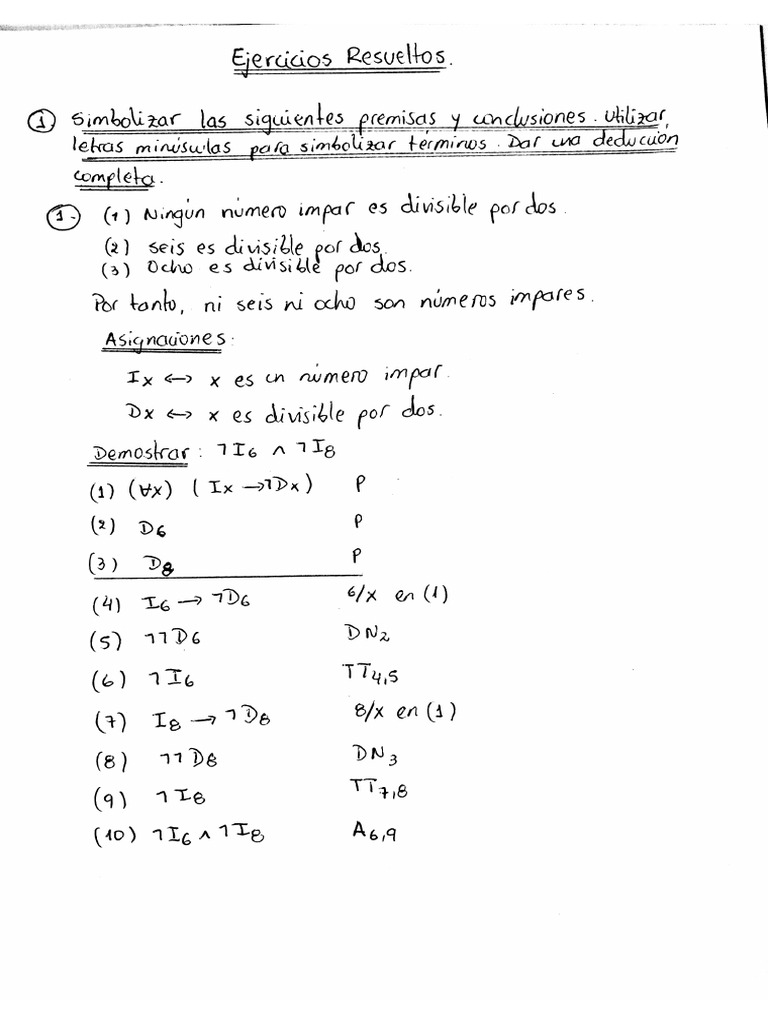 Ejercicios Resueltos.
① Simbolizar las siguientes premisas y conclusiones. Utilizar,
letras minúsculas para simbolizar términos. Dar una deducción
completa.
1.- (1) Ningún número impar es divisible por dos.
(2) seis es divisible por dos.
(3) Ocho es divisible por dos.
Por tanto, ni seis ni ocho son números impares.
Asignaciones:
Ix ↔ x es un número impar.
Dx ↔ x es divisible por dos.
Demostrar: ¬I₆ ∧ ¬I₈
(1) (∀x) (Ix → ¬Dx) P
(2) D₆ P
(3) D₈ P
(4) I₆ → ¬D₆ 6/x en (1)
(5) ¬¬D₆ DN₂
(6) ¬I₆ TT₄,₅
(7) I₈ → ¬D₈ 8/x en (1)
(8) ¬¬D₈ DN₃
(9) ¬I₈ TT₇,₈
(10) ¬I₆ ∧ ¬I₈ A₆,₉